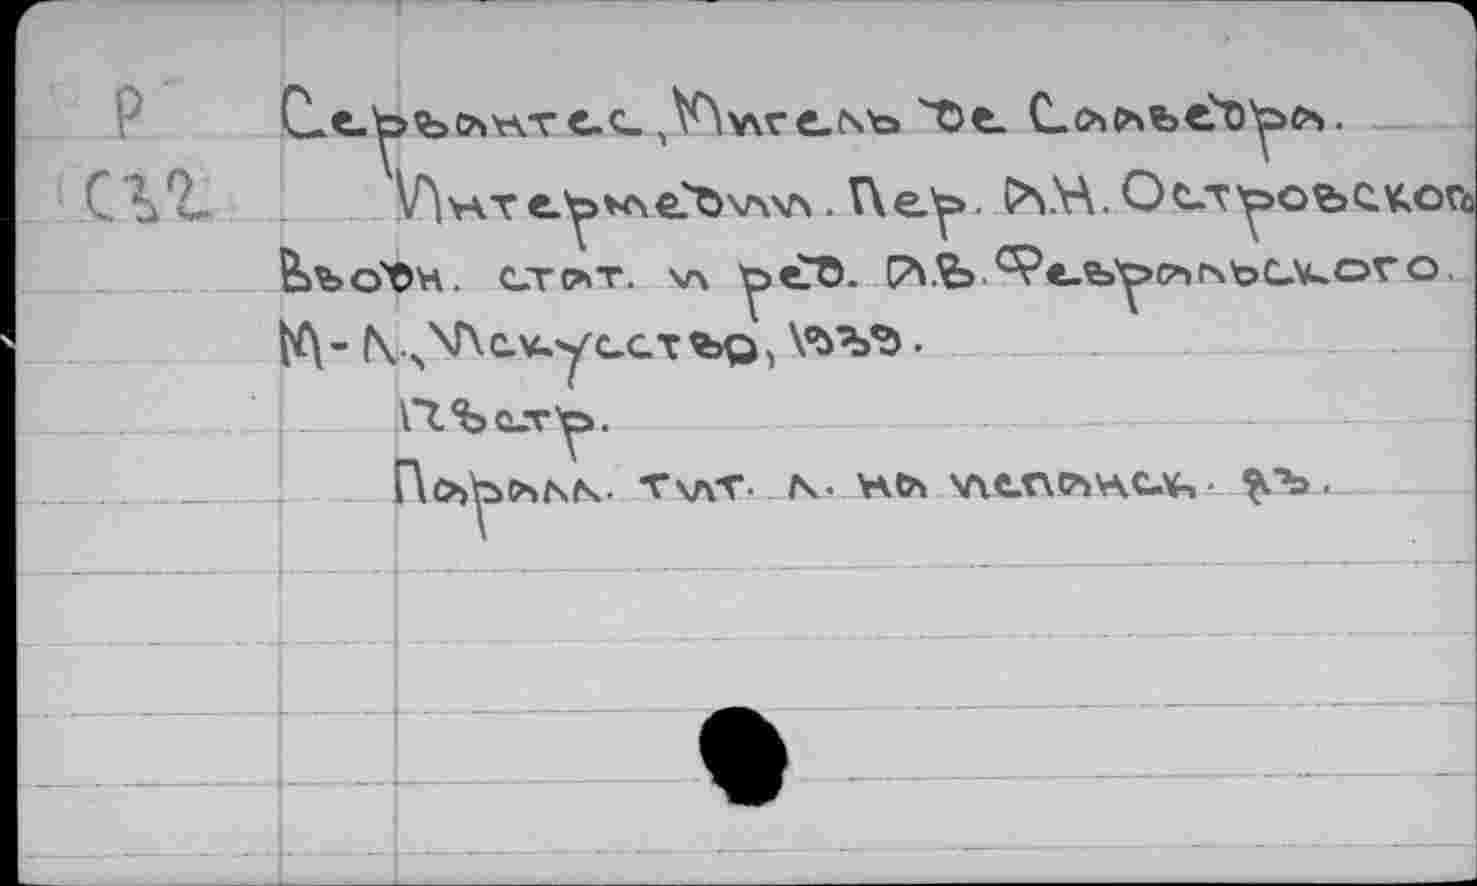 Р Сервантес, Мигель де Сааведра.
С32 Интермедии. Пер. А.Н. Островского
Вводн. стат. и ред. А.В. Февральского.
М-Л., Искусство, 1939.
173 стр.
Паралл. тит. л. на испанск. яз.